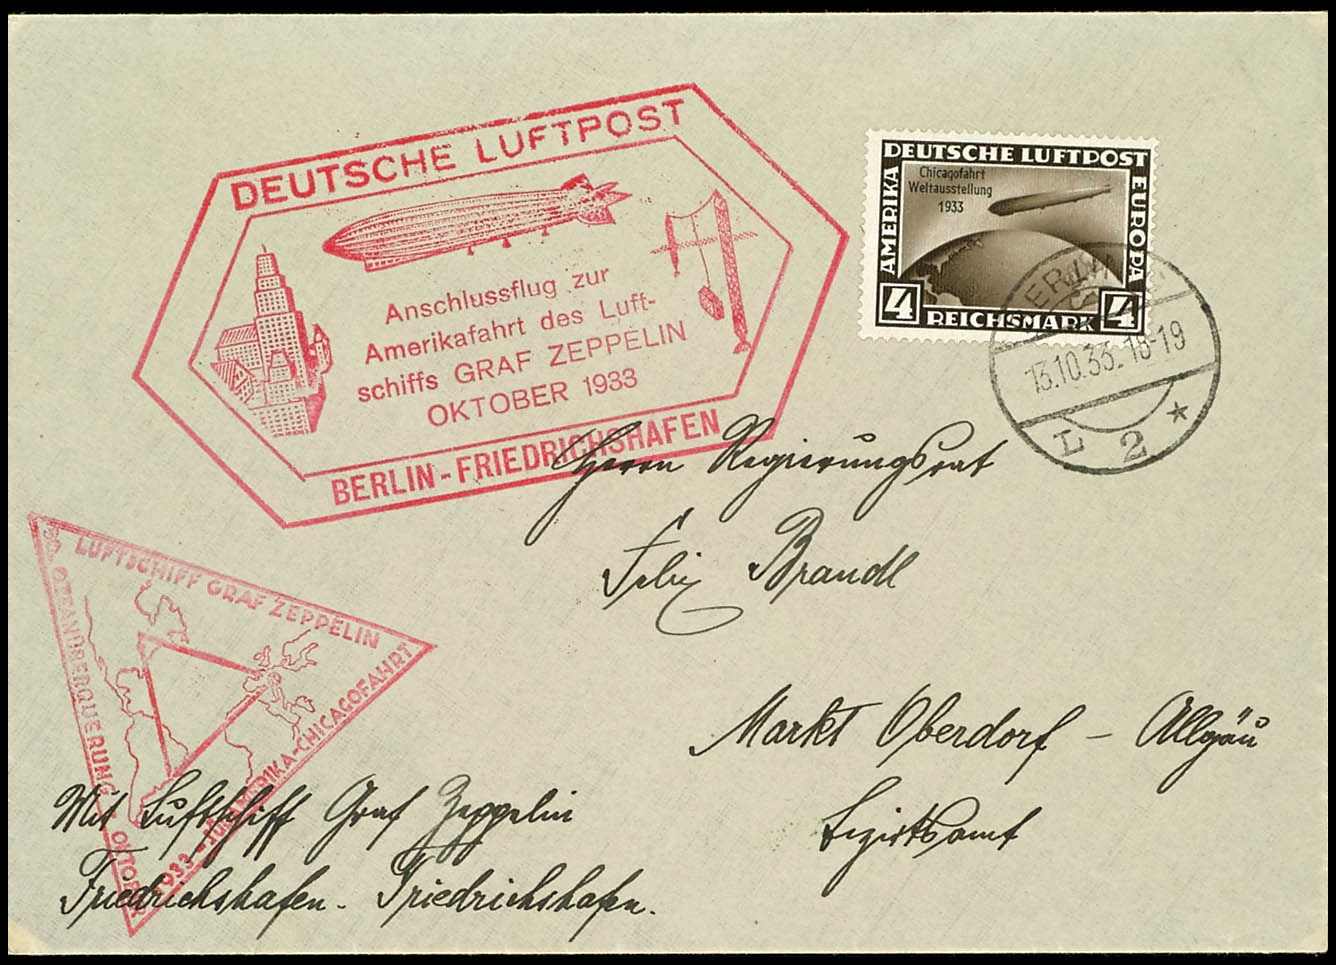 DEUTSCHE LUFTPOST
Anschlussflug zur
Amerikafahrt des Luft-
schiffs GRAF ZEPPELIN
OKTOBER 1933
BERLIN - FRIEDRICHSHAFEN
DEUTSCHE LUFTPOST
AMERIKA
EUROPA
Chicagofahrt
Weltausstellung
1933
4 REICHSMARK 4
BERLIN
13.10.33.18-19
L 2 *
Herrn Regierungsrat
Felix Brandl
Markt Oberdorf - Allgäu
Bezirksamt
LUFTSCHIFF GRAF ZEPPELIN
50. OZEANÜBERQUERUNG * OKTOBER
1933 - SÜDAMERIKA-CHICAGOFAHRT
Mit Luftschiff Graf Zeppelin
Friedrichshafen - Friedrichshafen.